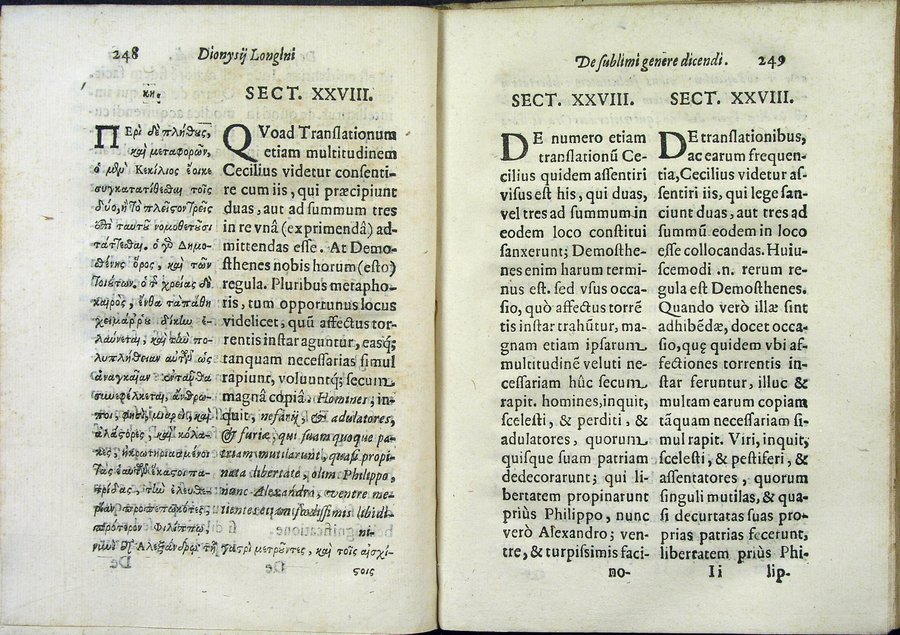 248 Dionysij Longini
κη.
Περὶ δὲ πλήθους,
καὶ μεταφορῶν,
ὁ μὲν Κεκίλιος ἔοικε
συγκατατίθεσθαι τοῖς
δύο, ἢ τὸ πλεῖστον τρεῖς
ἐπὶ ταυτοῦ νομοθετοῦσι
τάττεσθαι. ὁ γὸ Δημο-
θένης ὅρος, καὶ τῶν
τοιούτων. ὁ τ χρείας δὲ
καιρὸς, ἔνθα τὰ πάθη
χειμάρρου δίκην ἐ-
λαύνεται, καὶ τὴν πο-
λυπλήθειαν αὐτῶν ὡς
ἀναγκαίαν ἐνταῦθα
συνεφέλκεται, ἄνθρω-
ποι, φησὶ, μιαροὶ, καὶ
ἀλάστορες, καὶ κόλα-
κες, ἠκρωτηριασμένοι
τὰς ἑαυτῶν ἕκαστοι πα-
τρίδας, τὴν ἐλευθε-
ρίαν προπεπωκότες,
πρότερον Φιλίππῳ,
νῦν δὲ Ἀλεξάνδρῳ τῇ γαστρὶ μετροῦντες, καὶ τοῖς αἰσχί-
στοις
SECT. XXVIII.
QVoad Translationum
etiam multitudinem
Cecilius videtur consenti-
re cum iis, qui præcipiunt
duas, aut ad summum tres
in re vnâ (exprimendâ) ad-
mittendas esse. At Demo-
sthenes nobis horum (esto)
regula. Pluribus metapho-
ris, tum opportunus locus
videlicet, quũ affectus tor-
rentis instar aguntur, easq;
tanquam necessarias simul
rapiunt, voluuntq; secum
magnâ copiâ. Homines, in-
quit, nefarij, & adulatores,
& furiæ, qui suam quoque pa-
triam mutilarunt, quasi propi-
nata libertate, olim Philippo,
nunc Alexandro, ventre me-
tientes etiam fœdissimis libidi-
ni-
De sublimi genere dicendi. 249
SECT. XXVIII.
DE numero etiam
translationũ Ce-
cilius quidem assentiri
visus est his, qui duas,
vel tres ad summum in
eodem loco constitui
sanxerunt; Demosthe-
nes enim harum termi-
nus est. sed vsus occa-
sio, quò affectus torrē
tis instar trahũtur, ma-
gnam etiam ipsarum
multitudinē veluti ne-
cessariam hûc secum
rapit. homines, inquit,
scelesti, & perditi, &
adulatores, quorum
quisque suam patriam
dedecorarunt; qui li-
bertatem propinarunt
priùs Philippo, nunc
verò Alexandro; ven-
tre, & turpissimis faci-
no-
SECT. XXVIII.
DE translationibus,
ac earum frequen-
tia, Cecilius videtur as-
sentiri iis, qui lege san-
ciunt duas, aut tres ad
summũ eodem in loco
esse collocandas. Huiu-
scemodi .n. rerum re-
gula est Demosthenes.
Quando verò illæ sint
adhibēdæ, docet occa-
sio, quę quidem vbi af-
fectiones torrentis in-
star feruntur, illuc &
multam earum copiam
tãquam necessariam si-
mul rapit. Viri, inquit,
scelesti, & pestiferi, &
assentatores, quorum
singuli mutilas, & qua-
si decurtatas suas pro-
prias patrias fecerunt,
libertatem priùs Phi-
Ii lip-